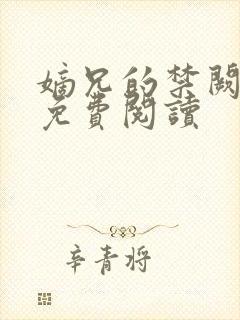 嫡兄的禁闕
免費閱讀
辛青将